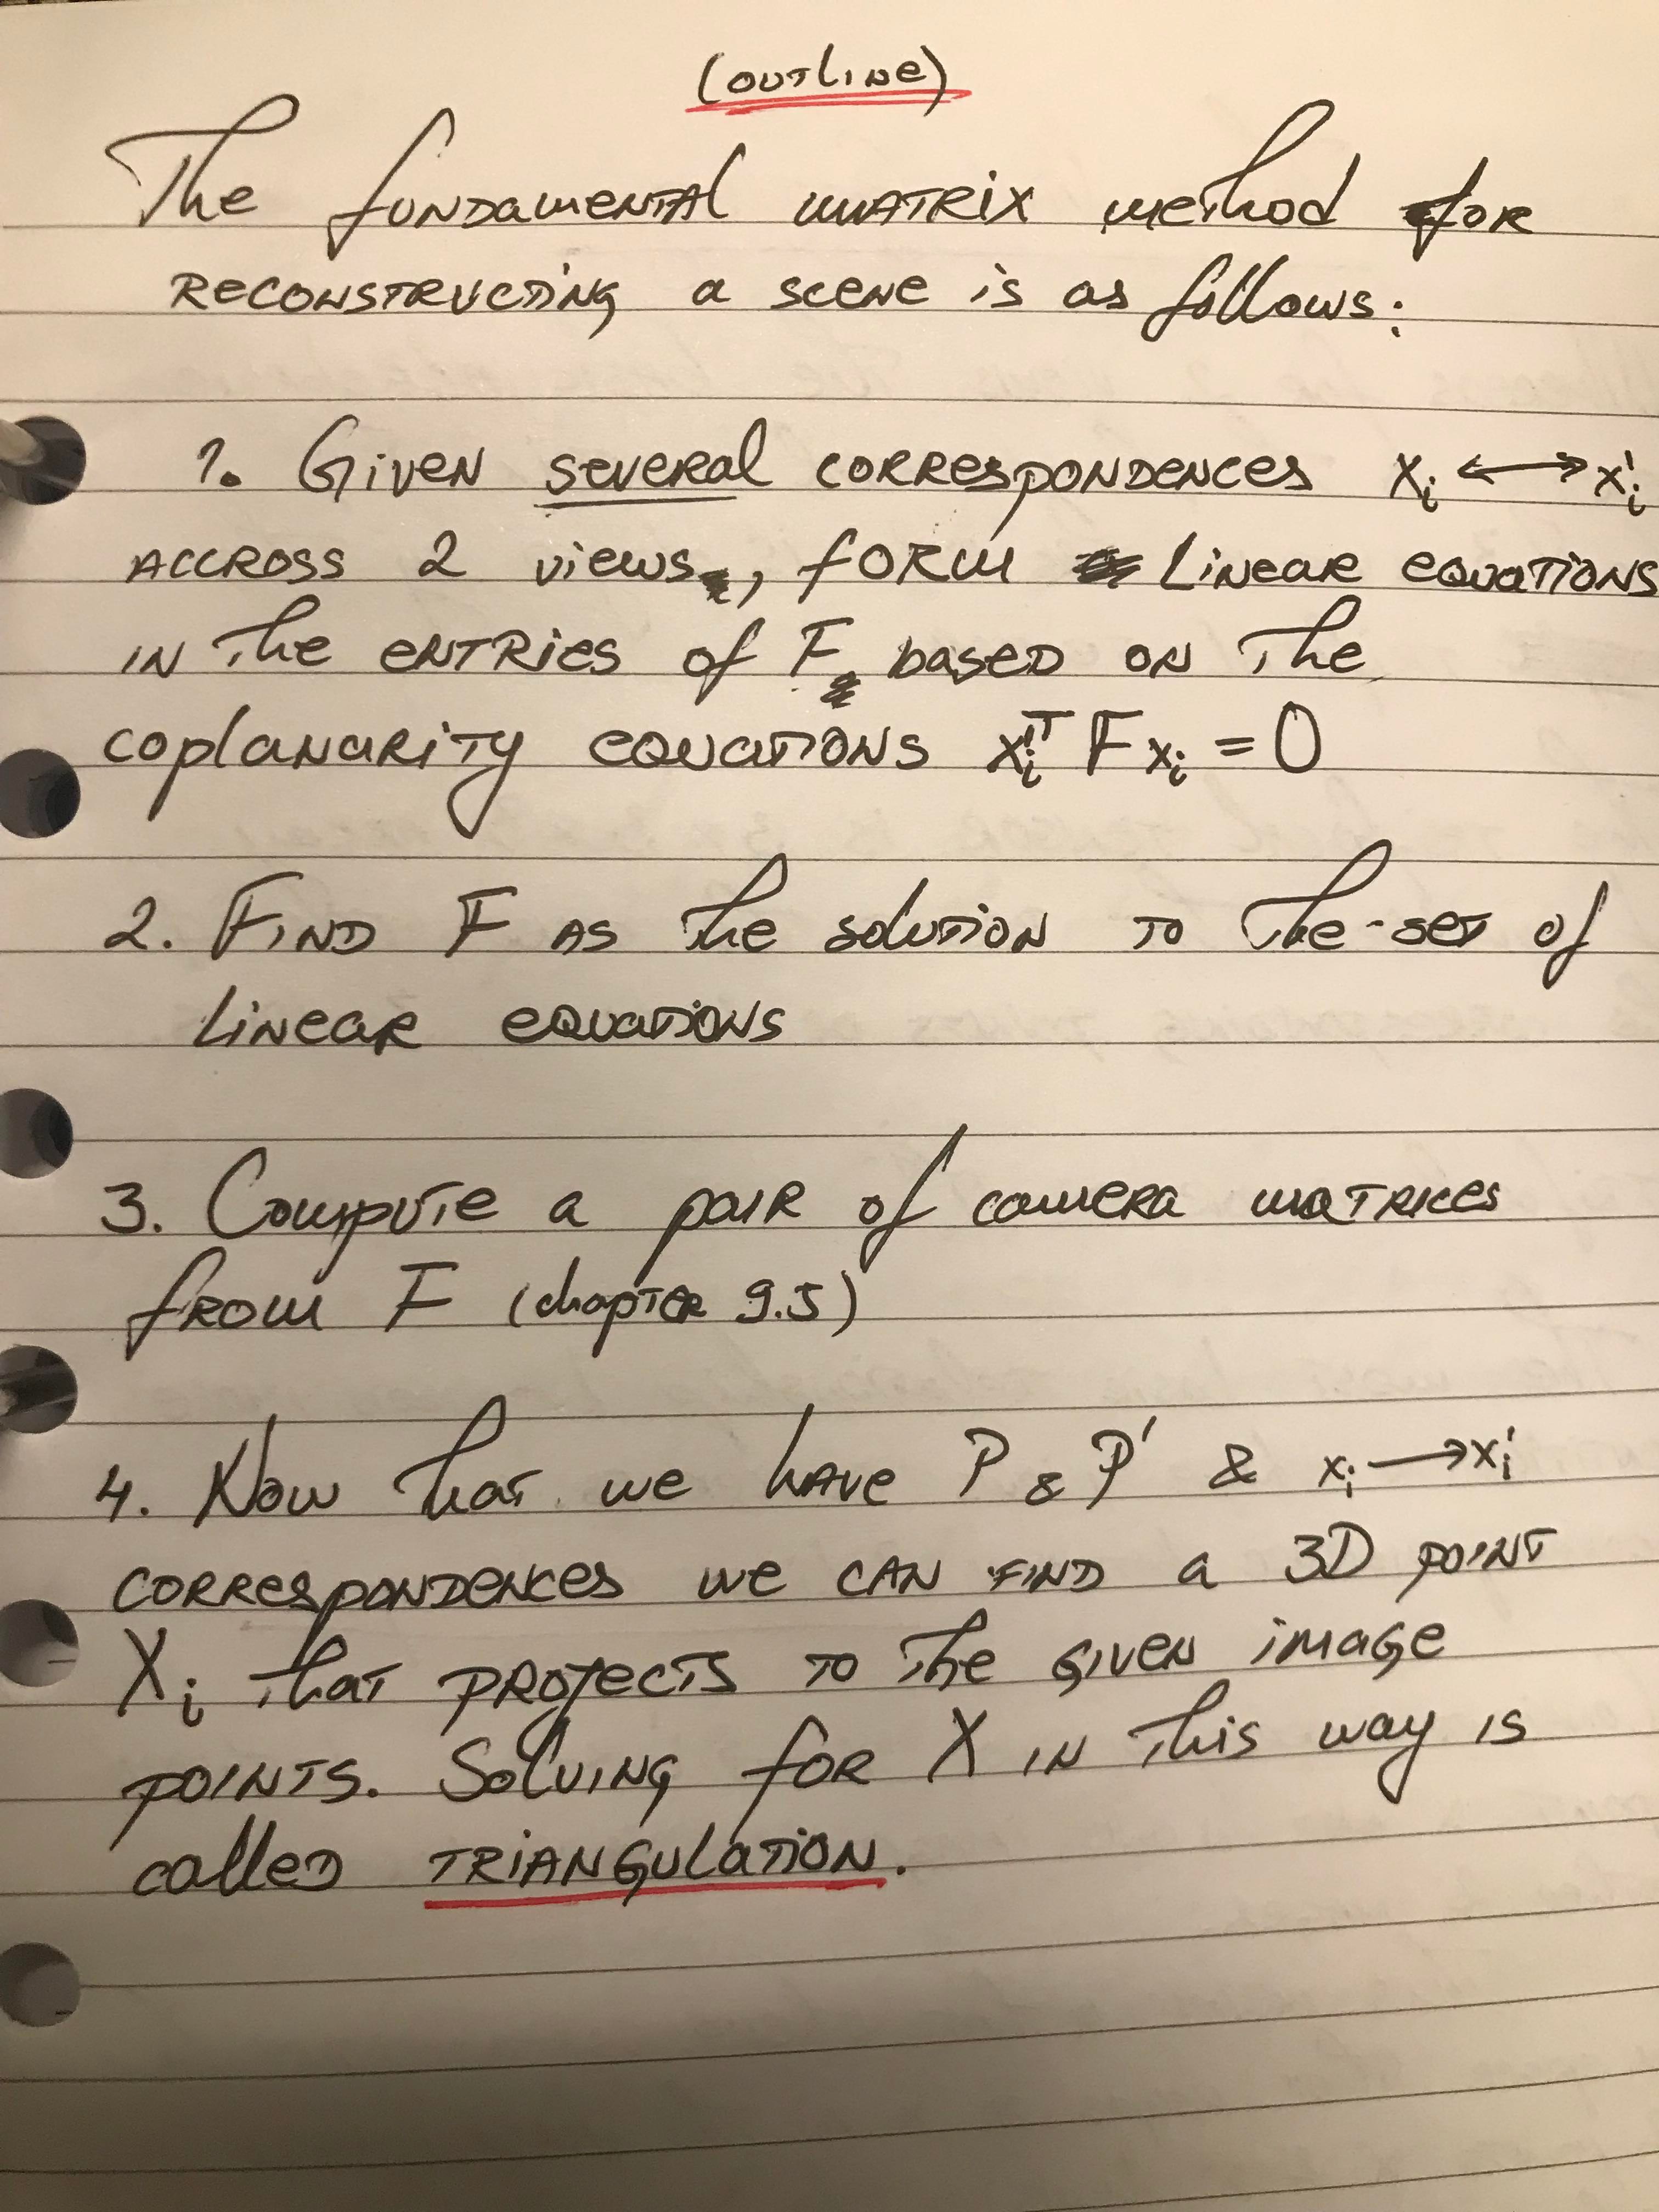 (OUTLINE)
The fundamental matrix method for
reconstructing a scene is as follows:
1. Given several correspondences xᵢ ⟷ xᵢ'
accross 2 views, form linear equations
in the entries of F based on the
coplanarity equations xᵢ'ᵀ F xᵢ = 0
2. Find F as the solution to the set of
linear equations
3. Compute a pair of camera matrices
from F (chapter 9.5)
4. Now that we have P & P' & xᵢ ⟶ xᵢ'
correspondences we can find a 3D point
Xᵢ that projects to the given image
points. Solving for X in this way is
called TRIANGULATION.